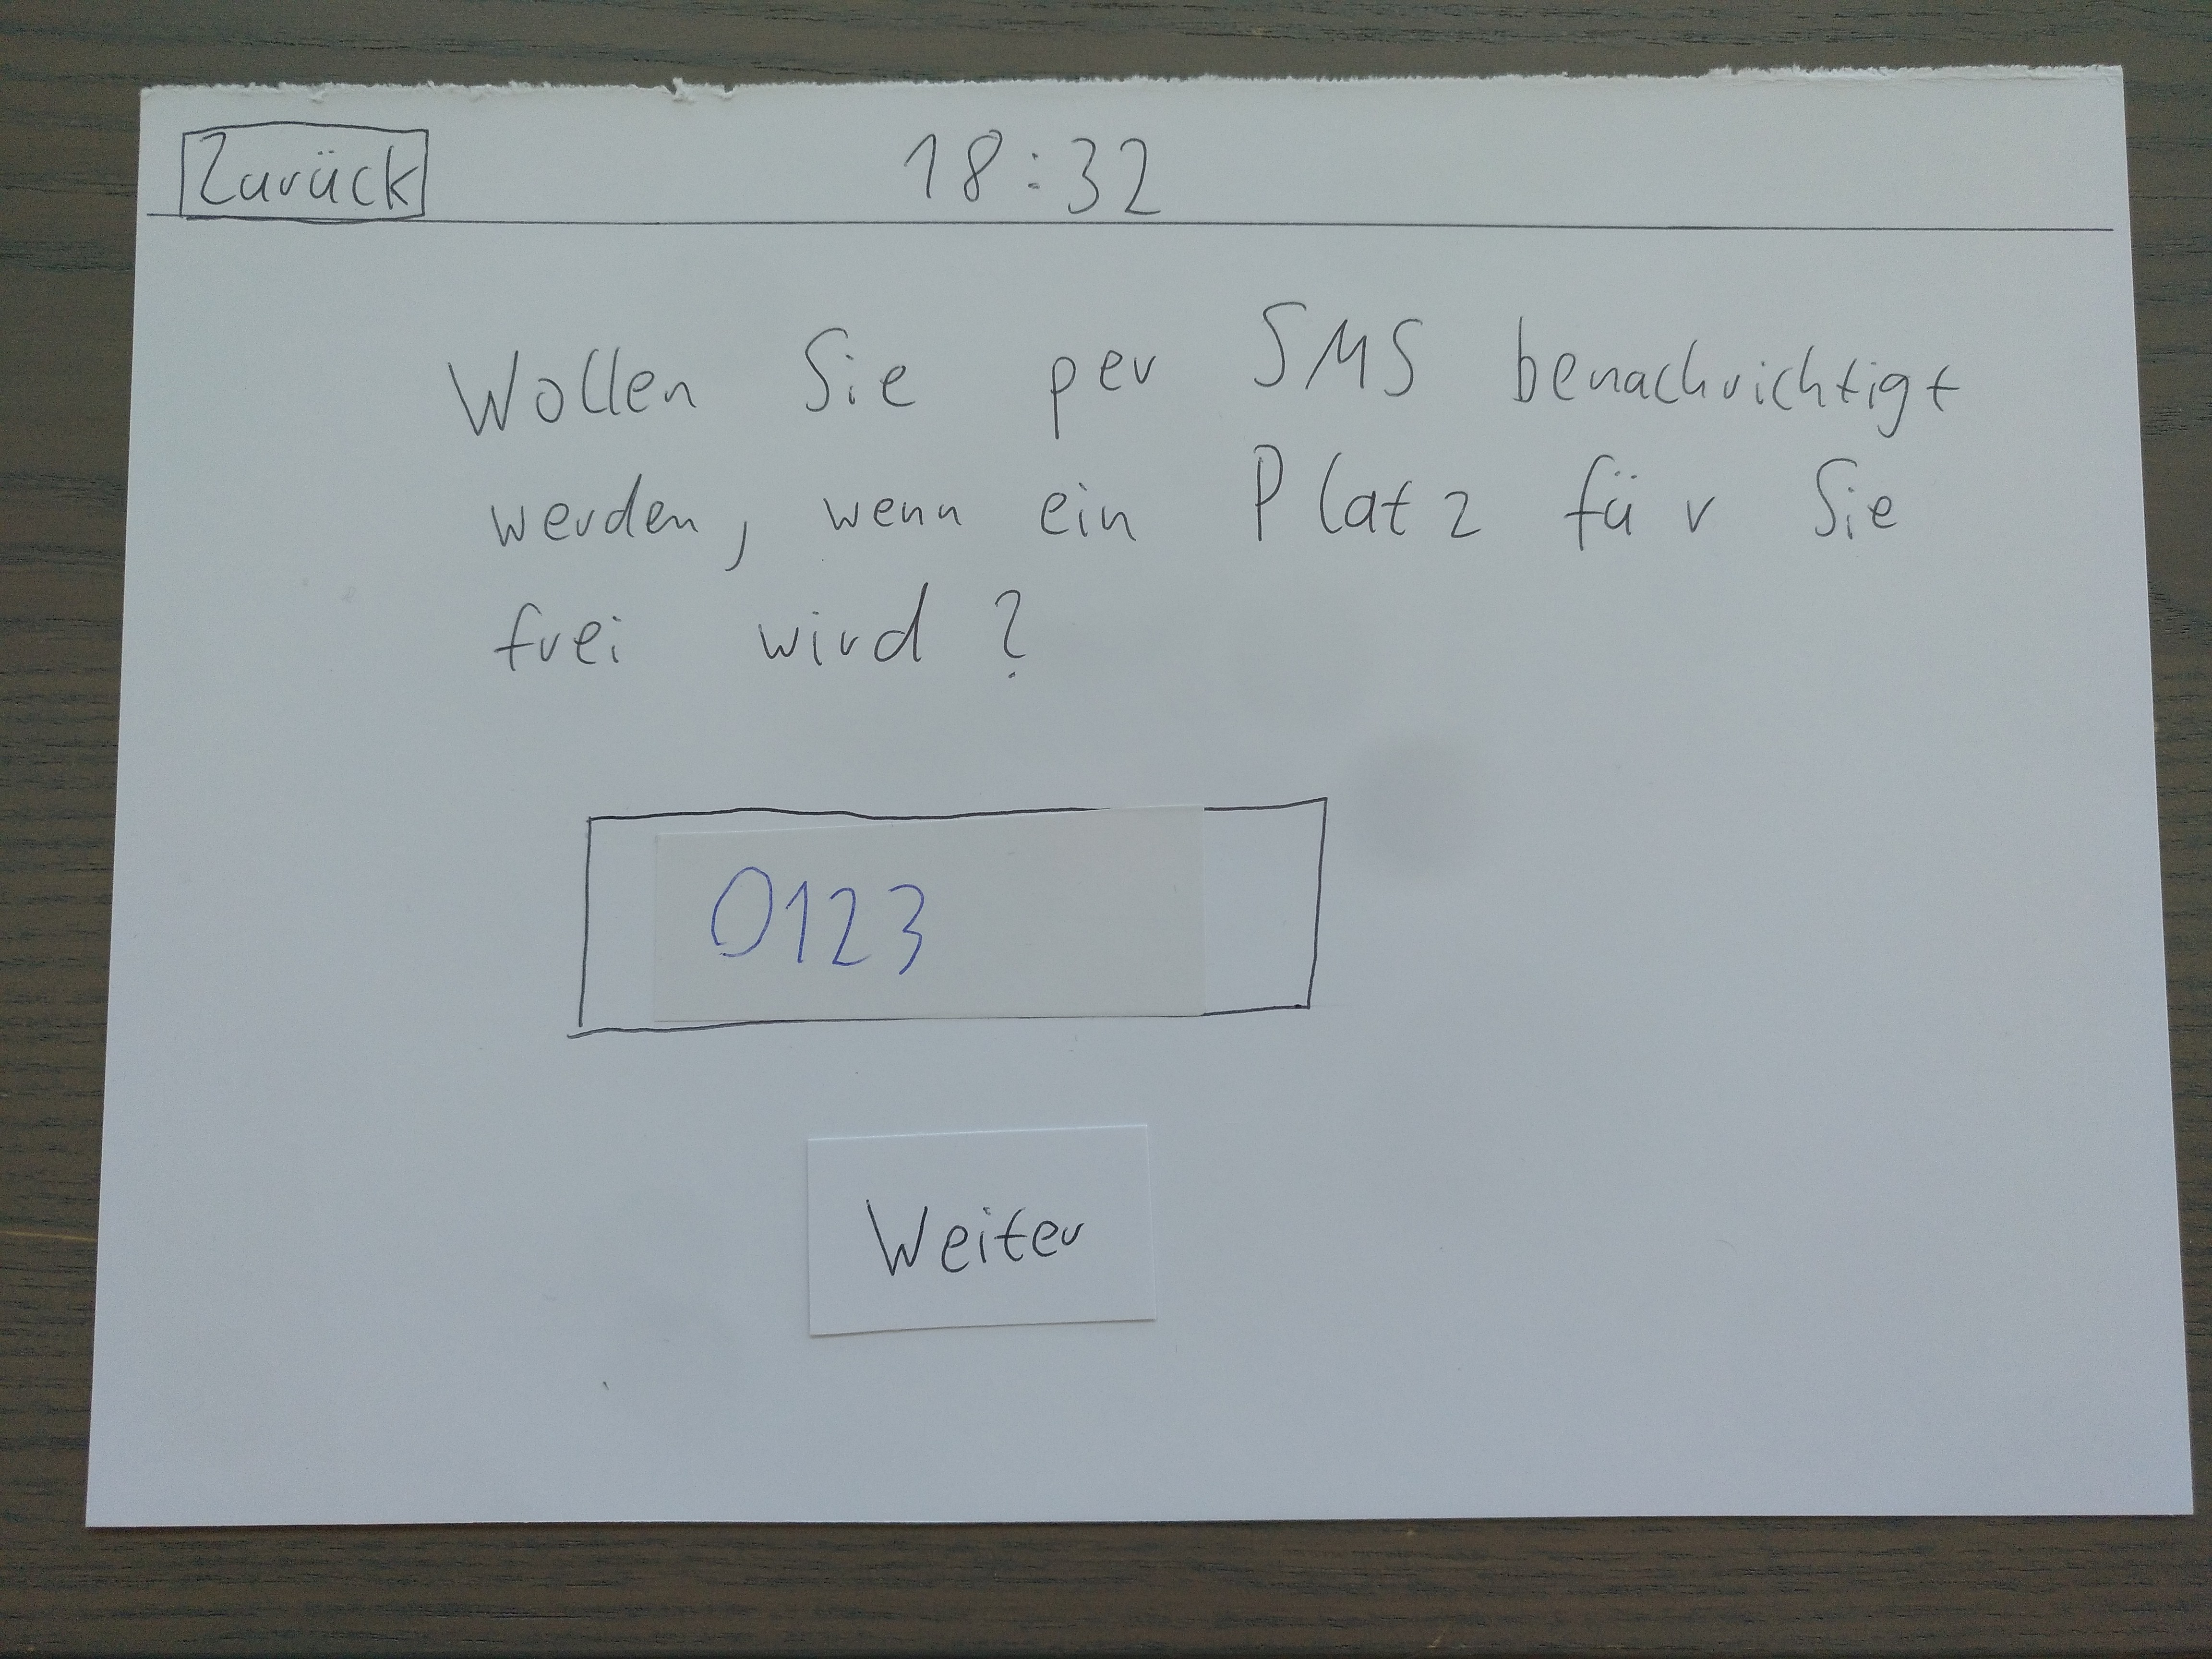 Zurück 18:32
Wollen Sie per SMS benachrichtigt
werden, wenn ein Platz für Sie
frei wird?
0123
Weiter